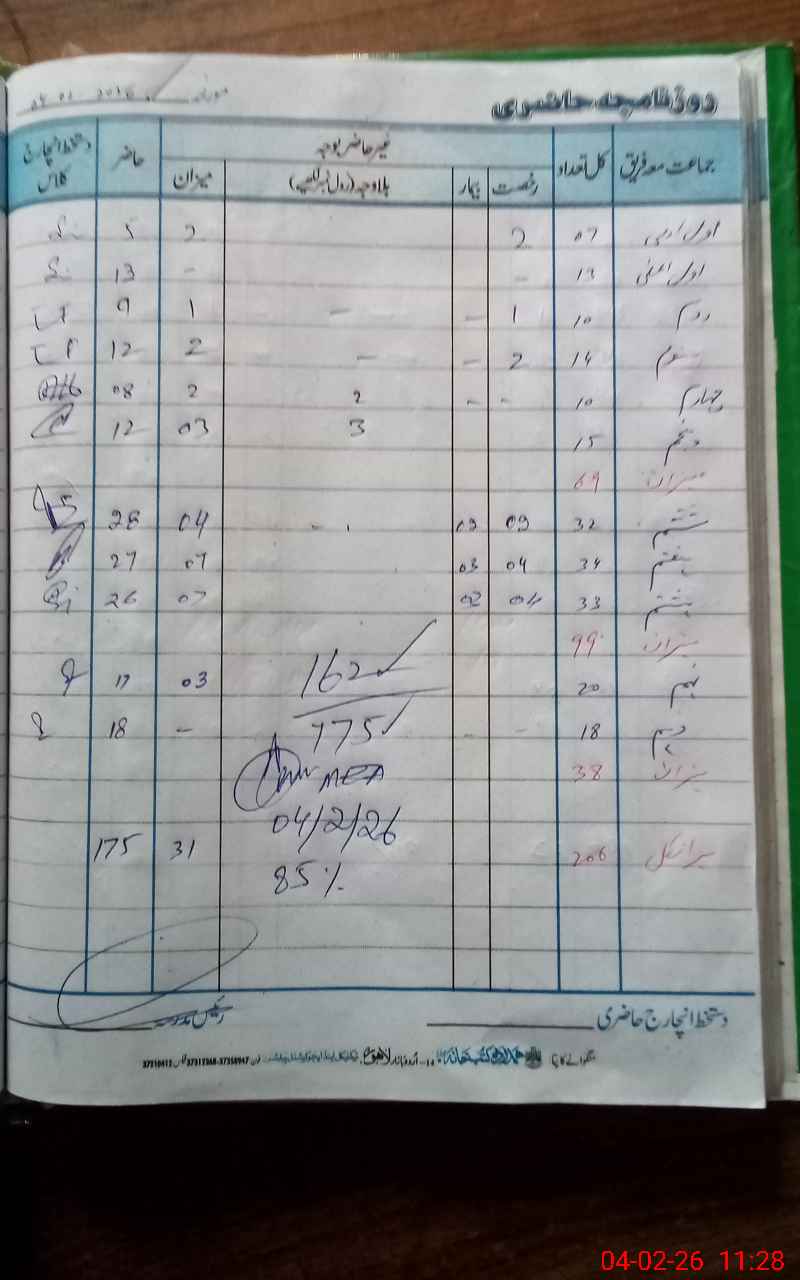 روزنامچہ حاضری
مورخہ
جماعت معہ فریق کل تعداد غیر حاضر بوجہ حاضر دستخط انچارج کلاس
رخصت بیمار بلاوجہ (رول نمبر لکھیے) میزان
اول ادنی 07 2 2 5
اول اعلی 13 - - 13
دوم 10 1 - - 1 9
سوم 14 2 - - 2 12
چہارم 10 - - 2 2 08
پنجم 15 3 03 12
میزان 69
ششم 32 04 28
ہفتم 34 04 03 07 27
ہشتم 33 04 07 26
میزان 99
نہم 20 03 17
162
دہم 18 - - - 18
175
میزان 38
MEA
04/2/26
میزان کل 206 31 175
85%
دستخط انچارج حاضری رئیس مدرسہ
04-02-26 11:28